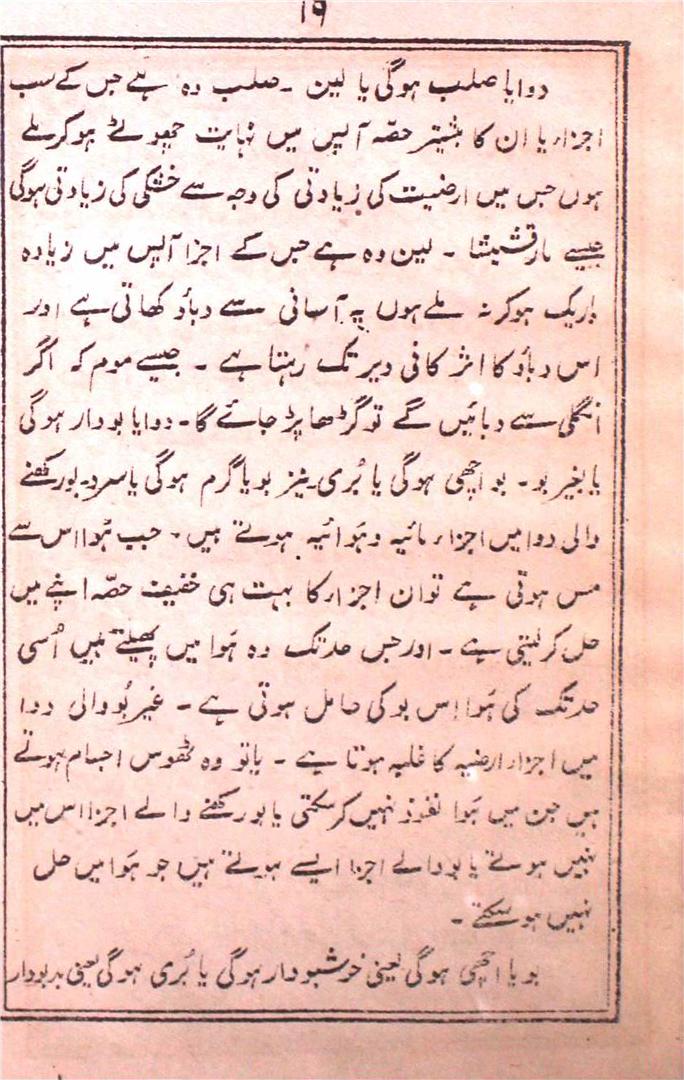 ۱۹
دوا یا صلب ہوگی یا لین ۔ صلب وہ ہے جس کے سب
اجزاء یا ان کا بیشتر حصّہ آپس میں نہایت چھوٹے ہوکر ملے
ہوں جس میں ارضیت کی زیادتی کی وجہ سے خشکی کی زیادتی ہوگی
جیسے مارقشیشا ۔ لین وہ ہے جس کے اجزا آپس میں زیادہ
باریک ہوکر نہ ملے ہوں یہ آسانی سے دباؤ کھاتی ہے اور
اس دباؤ کا اثر کافی دیر تک رہتا ہے ۔ جیسے موم کہ اگر
انگلی سے دبائیں گے تو گڑھا پڑ جائے گا ۔ دوا یا بودار ہوگی
یا بغیر بو ۔ بو اچھی ہوگی یا بُری ۔ نیز بو یا گرم ہوگی یا سرد ۔ بو رکھنے
والی دوا میں اجزاء مائیہ و ہوائیہ ہوتے ہیں ۔ جب ہَوا اس سے
مس ہوتی ہے تو ان اجزاء کا بہت ہی خفیف حصّہ اپنے میں
حل کر لیتی ہے ۔ اور جس حد تک وہ ہَوا میں پھیلتے ہیں اُسی
حد تک کی ہَوا اِس بو کی حامل ہوتی ہے ۔ غیر بُو والی دوا
میں اجزاء ارضیہ کا غلبہ ہوتا ہے ۔ یا تو وہ ٹھوس اجسام ہوتے
ہیں جن میں ہَوا نفوذ نہیں کر سکتی یا بو رکھنے والے اجزا اس میں
نہیں ہوتے یا بو والے اجزا ایسے ہوتے ہیں جو ہَوا میں حل
نہیں ہو سکتے ۔
بو یا اچھی ہوگی یعنی خوشبودار ہوگی یا بُری ہوگی یعنی بدبودار